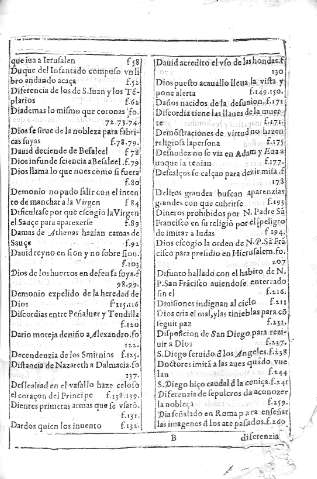 que iua a Ierusalen f 58
Duque del Infantado compuso vn li
bro andando a caça f.52
Diferencia de los de S. Iuan y los Té-
plarios f.62
Diademas lo mismo que coronas .fo.
72.73.74.
Dios se sirue de la nobleza para fabri-
cas suyas f.78.79.
Dauid deciende de Beseleel f 78
Dios infunde sciencia a Beseleel .f.79
Dios llama lo que no es como si fuera
f.80
Demonio no pudo salir con el inten
to de manchar a la Virgen f 84
Dificultase por que escogio la Virgen
el Sauço para aparecerse f.89
Damas de Athenas hazian camas de
Sauçe f.92
Dauid reyno en sion y no sobre sion.
f.103
Dios de los huertos en defensa suya.f
98.99.
Demonio expelido de la heredad de
Dios f.115.116
Discordias entre Peñalue y Tendilla
f.120
Dario moteja de niño a Alexandro.fo
122.
Decendencia de los Smirnios f.125.
Distancia de Nazareth a Dalmacia .fo
137.
Deslealtad en el vasallo haze celoso
el coraçon del Principe f.138.139.
Dientes primeras armas que se vsarō.
f.151.
Dardos quien los inuento f.152.
Dauid acredito el vso de las hondas.f
130
Dios puesto a cauallo lleua la vista y
pone alerta f.149.150.
Daños nacidos de la desunion.f.171
Discordia tiene las llaues de la muer-
te f.171.
Demōstraciones de virtud no hazen
religiosa la persona f.175
Desnudez no se via en Adam y Eua a
unque la tenian f.177.
Descalços se calçan para dezir misa .f
178
Delitos grandes buscan aparencias
grandes con que cubrirse f.193
Dineros prohibidos por N. Padre Sã
Francisco en su religiō por el peligro
de imitar a Iudas f.194.
Dios escogio la orden de N.P.Sã Frã
cisco para presidio en Hierusalem.fo.
207
Difunto hallado con el habito de N.
P. San Frãcisco auiendose enterrado
sin el f.216.
Diuisiones indignan al cielo f.211
Dios cria el mal, y las tinieblas para cō
seguir paz f.232.
Disposicion de San Diego para reci-
uir a Dios f.237.
S. Diego seruido d los Angeles.f.238
Doctores imita a las aues quādo vue
lan f.244
S. Diego hiço caudal d la ceniça.f.245
Diferencia de sepulcros da a conozer
la nobleza f.259.
Dia señalado en Roma para enseñar
las imagenes d los ãte pasados.f.260
B diferencia